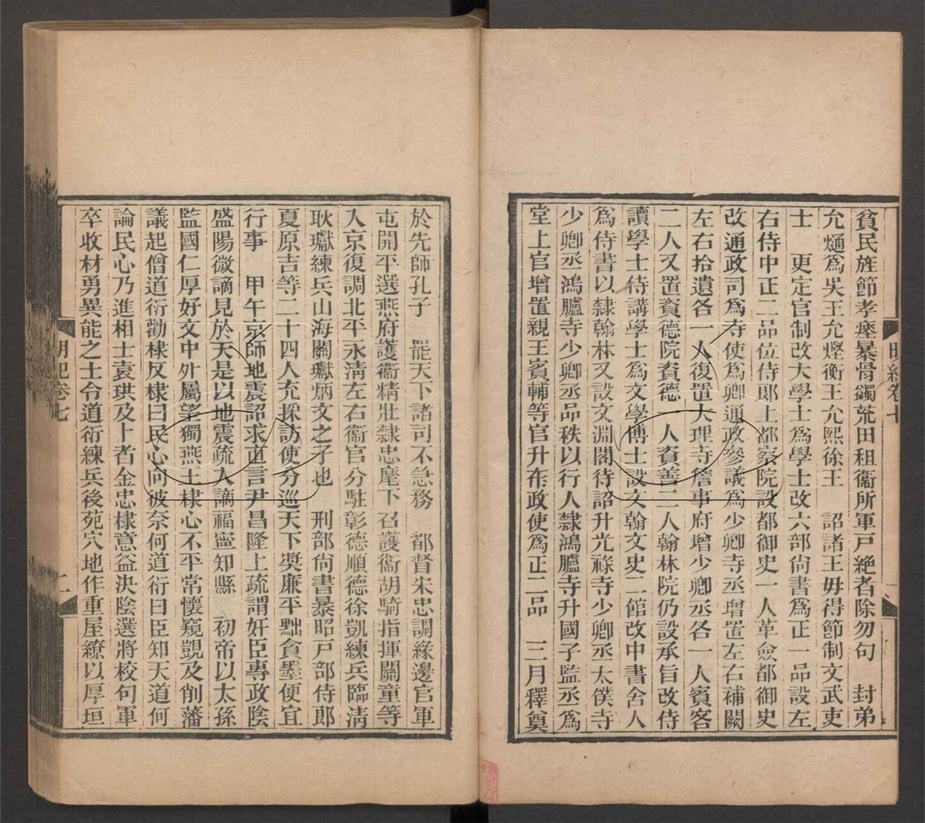 貧民旌節孝瘞暴骨蠲荒田租衞所軍戸絶者除勿句　封弟
允熥爲吳王允熞衡王允熙徐王　詔諸王毋得節制文武吏
士　更定官制改大學士爲學士改六部尙書爲正一品設左
右侍中正二品位侍郎上都察院設都御史一人革僉都御史
改通政司爲寺使爲卿通政參議爲少卿寺丞增置左右補闕
左右拾遺各一人復置大理寺詹事府增少卿丞各一人賓客
二人又置資德院資德一人資善二人翰林院仍設承旨改侍
讀學士侍講學士爲文學博士設文翰文史二館改中書舍人
爲侍書以隸翰林又設文淵閣待詔升光祿寺少卿丞太僕寺
少卿丞鴻臚寺少卿丞品秩以行人隸鴻臚寺升國子監丞爲
堂上官增置親王賓輔等官升布政使爲正二品　三月釋奠
明紀卷七
於先師孔子　罷天下諸司不急務　都督宋忠調緣邊官軍
屯開平選燕府護衞精壯隸忠麾下召護衞胡騎指揮關童等
入京復調北平永淸左右衞官分駐彰德順德徐凱練兵臨淸
耿瓛練兵山海關瓛炳文之子也　刑部尙書暴昭戸部侍郎
夏原吉等二十四人充採訪使分巡天下奬廉平黜貪墨便宜
行事　甲午京師地震詔求直言尹昌隆上疏謂奸臣專政陰
盛陽微謫見於天是以地震疏入謫福寧知縣　初帝以太孫
監國仁厚好文中外屬望獨燕王棣心不平常懷窺覬及削藩
議起僧道衍勸棣反棣曰民心向彼奈何道衍曰臣知天道何
論民心乃進相士袁珙及卜者金忠棣意益決陰選將校句軍
卒收材勇異能之士令道衍練兵後苑穴地作重屋繚以厚垣
明紀卷七
二